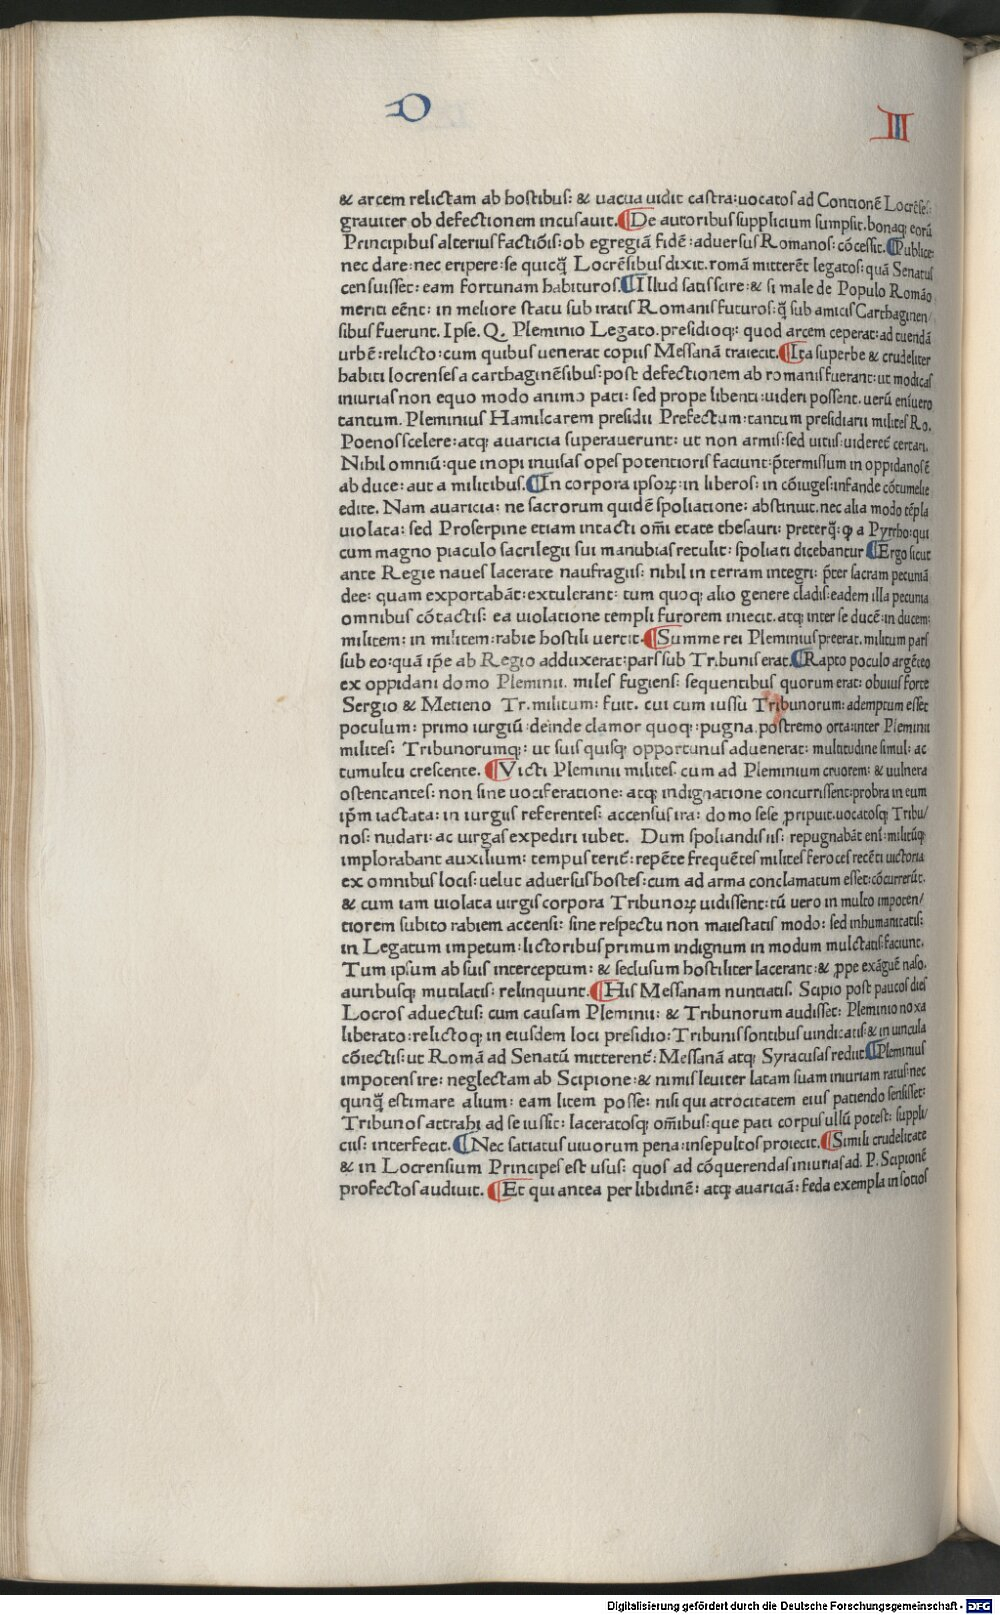 D
III
& arcem relictam ab hostibus: & uacua uidit castra: uocatos ad Contionē Locrēses:
grauiter ob defectionem incusauit. De autoribus supplicium sumpsit. bonaq; eorū
Principibus alterius factiōis: ob egregiā fidē: aduersus Romanos: cōcessit. Publice:
nec dare: nec eripere: se quicq̄ Locrēsibus dixit. romā mitterēt legatos: quā Senatus
censuisset: eam fortunam habituros. Illud satis scire: & si male de Populo Romāo
meriti eēnt: in meliore statu sub iratis Romanis futuros: q̄ sub amicis Carthaginen/
sibus fuerunt. Ipse. Q. Pleminio Legato. presidioq;: quod arcem ceperat: ad tuendā
urbē: relicto: cum quibus uenerat copiis Messanā traiecit. Ita superbe & crudeliter
habiti locrenses a carthaginēsibus: post defectionem ab romanis fuerant: ut modicas
iniurias non equo modo animo pati: sed prope libenti: uideri possent. uerū eniuero
tantum. Pleminius Hamilcarem presidii Prefectum: tantum presidiarii milites Ro.
Poenos scelere: atq; auaricia superauerunt: ut non armis: sed uitiis: uideret̄ certari.
Nihil omniū: que inopi inuisas opes potentioris faciunt: p̄termissum in oppidanos ē
ab duce: aut a militibus. In corpora ipsoꝝ: in liberos: in cōiuges: infande cōtumelie
edite. Nam auaricia: ne sacrorum quidē spoliatione: abstinuit. nec alia modo tēpla
uiolata: sed Proserpine etiam intacti om̄i etate thesauri: preterq̄: ꝙ a Pyrrho: qui
cum magno piaculo sacrilegii sui manubias retulit: spoliati dicebantur Ergo sicut
ante Regie naues lacerate naufragiis: nihil in terram integri: p̄ter sacram pecuniā
dee: quam exportabāt: extulerant: tum quoq; alio genere cladis: eadem illa pecunia
omnibus cōtactis: ea uiolatione templi furorem iniecit. atq; inter se ducē: in ducem:
militem: in militem: rabie hostili uertit. Summe rei Pleminius preerat. militum pars
sub eo: quā ip̄e ab Regio adduxerat: pars sub Tribunis erat. Rapto poculo argēteo
ex oppidani domo Pleminii. miles fugiens: sequentibus quorum erat: obuius forte
Sergio & Metieno Tr. militum: fuit. cui cum iussu Tribunorum: ademptum esset
poculum: primo iurgiū: deinde clamor quoq;: pugna. postremo orta: inter Pleminii
milites: Tribunorumq;: ut suis quisq; opportunus aduenerat: multitudine simul: ac
tumultu crescente. Victi Pleminii milites. cum ad Pleminium cruorem: & uulnera
ostentantes: non sine uociferatione: atq; indignatione concurrissent: probra in eum
ip̄m iactata: in iurgiis referentes: accensus ira: domo sese ꝓripuit. uocatosq; Tribu/
nos: nudari: ac uirgas expediri iubet. Dum spoliandis iis: repugnabāt eni: militūq;
implorabant auxilium: tempus terit̄: repēte frequētes milites feroces recēti uictoria
ex omnibus locis: uelut aduersus hostes: cum ad arma conclamatum esset: cōcurrerūt.
& cum iam uiolata uirgis corpora Tribunoꝝ uidissent: tū uero in multo impoten/
tiorem subito rabiem accensi: sine respectu non maiestatis modo: sed inhumanitatis:
in Legatum impetum: lictoribus primum indignum in modum mulctatis: faciunt.
Tum ipsum ab suis interceptum: & seclusum hostiliter lacerant: & ꝓpe exāguē naso.
auribusq; mutilatis: relinquunt. His Messanam nuntiatis. Scipio post paucos dies
Locros aduectus: cum causam Pleminii: & Tribunorum audisset: Pleminio noxa
liberato: relictoq; in eiusdem loci presidio: Tribunis sontibus uindicatis: & in uincula
cōiectis: ut Romā ad Senatū mitterent̄: Messanā atq; Syracusas rediit. Pleminius
impotens ire: neglectam ab Scipione: & nimis leuiter latam suam iniuriam ratus: nec
qunq̄ estimare alium: eam litem posse: nisi qui atrocitatem eius patiendo sensisset:
Tribunos attrahi ad se iussit: laceratosq; om̄ibus: que pati corpus ullū potest: suppli/
ciis: interfecit. Nec satiatus uiuorum pena: insepultos proiecit. Simili crudelitate
& in Locrensium Principes est usus: quos ad cōquerendas iniurias ad. P. Scipionē
profectos audiuit. Et qui antea per libidinē: atq; auariciā: feda exempla in socios
Digitalisierung gefördert durch die Deutsche Forschungsgemeinschaft - DFG